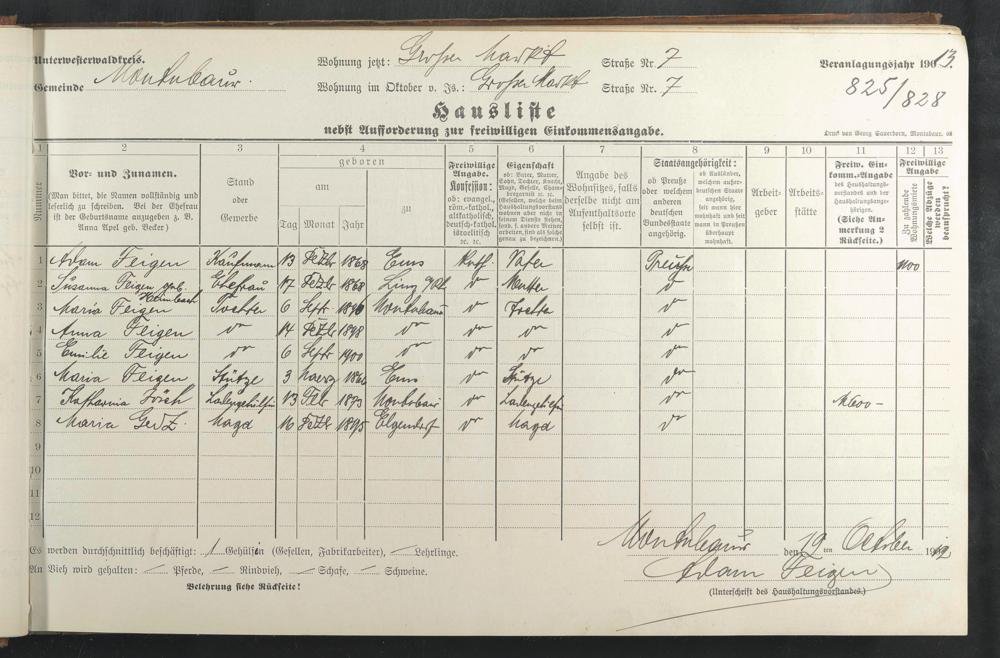 Unterwesterwaldkreis.
Gemeinde Montabaur.
Wohnung jetzt: Großer Markt Straße Nr. 7
Wohnung im Oktober v. Js.: Großer Markt Straße Nr. 7
Veranlagungsjahr 1913.
825/828
Hausliste
nebst Aufforderung zur freiwilligen Einkommensangabe.
Druck von Georg Sauerborn, Montabaur. 08
1 2 3 4 5 6 7 8 9 10 11 12 13
Nummer
Vor- und Zunamen.
(Man bittet, die Namen vollständig und
leserlich zu schreiben. Bei der Ehefrau
ist der Geburtsname anzugeben z. B.
Anna Apel geb. Becker.)
Stand
oder
Gewerbe
geboren
am
Tag Monat Jahr
zu
Freiwillige
Angabe.
Konfession:
ob: evangel.,
röm.-kathol.,
altkatholisch,
deutsch-kathol.,
israelitisch
ec. ec.
Eigenschaft
ob: Vater, Mutter,
Sohn, Tochter, Knecht,
Magd, Geselle,
Angabe des
Wohnsitzes, falls
derselbe nicht am
Aufenthaltsorte
selbst ist.
Staatsangehörigkeit:
ob Preuße
oder welchem
anderen
deutschen
Bundesstaate
angehörig.
ob Ausländer,
welchem außer-
deutschen Staate
angehörig,
seit wann hier
wohnhaft und seit
wann in Preußen
überhaupt
wohnhaft.
Arbeit-
geber
Arbeits-
stätte
Freiw. Ein-
komm.-Angabe
des Haushaltungs-
vorstandes und der
Haushaltungsange-
hörigen.
(Siehe An-
merkung 2
Rückseite.)
Freiwillige
Angabe
Zu zahlende
Wohnungsmiete
Welche Abzüge
werden
beansprucht?
1 Adam Feigen Kaufmann 13 1868 Ems Kath. Vater Preuße
2 Susanna Feigen geb. Ehefrau 17 1868 Mutter
3 Maria Feigen Tochter 6 Septr Montabaur Tochter
4 Anna Feigen do 14 1898 do do do do
5 Emilie Feigen do 6 Septr 1900 do do do do
6 Maria Feigen Stütze 3 Ems do Stütze do
7 Katharina Ladengehülfin 13 Febr 1893 Montabaur do Ladengehülfin do M600-
8 Maria Magd 16 1895 Elgendorf do Magd do
9
10
11
12
Es werden durchschnittlich beschäftigt: 1 Gehülfin (Gesellen, Fabrikarbeiter), — Lehrlinge.
An Vieh wird gehalten: — Pferde, — Rindvieh, — Schafe, — Schweine.
Belehrung siehe Rückseite!
Montabaur den 19 ten October 1912
Adam Feigen
(Unterschrift des Haushaltungsvorstandes.)